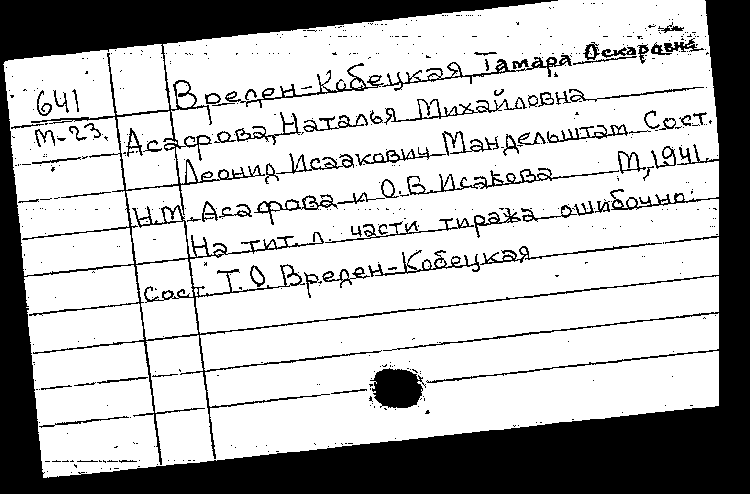 641
М-23.
Вреден-Кобецкая, Тамара Оскаровна
Асафова, Наталья Михайловна
Леонид Исаакович Мандельштам. Сост.
Н.М. Асафова и О.В. Исакова М, 1941.
На тит. л. части тиража ошибочно:
сост. Т.О. Вреден-Кобецкая